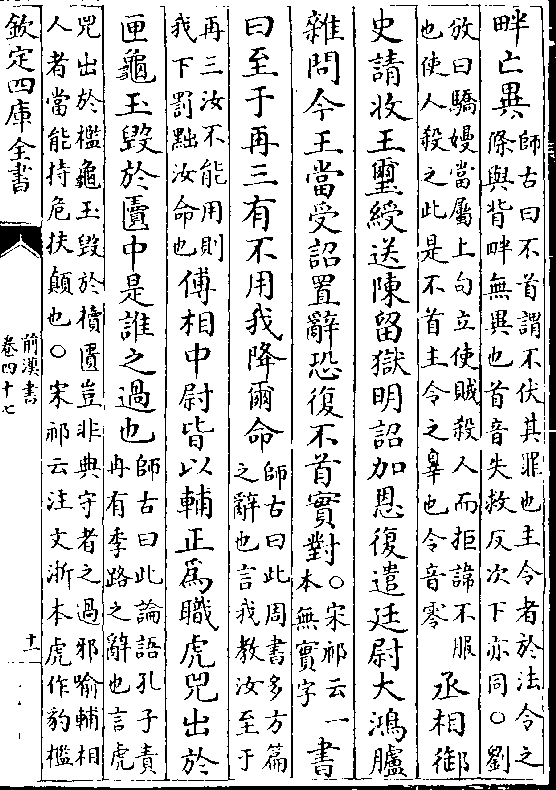 畔亡異
師古曰不首謂不伏其罪也主令者於法令之
條與背畔無異也首音失救反次下亦同○劉
攽曰驕嫚當屬上句立使賊殺人而拒諱不服
也使人殺之此是不首主令之辠也令音零
丞相御
史請收王璽綬送陳留獄明詔加恩復遣廷尉大鴻臚
雜問今王當受詔置辭恐復不首實對
○宋祁云一
本無實字
書
曰至于再三有不用我降爾命
師古曰此周書多方篇
之辭也言我教汝至于
再三汝不能用則
我下罰黜汝命也
傅相中尉皆以輔正為職虎兕出於
匣龜玉毀於匱中是誰之過也
師古曰此論語孔子責
冉有季路之辭也言虎
兕出於檻龜玉毀於櫝匱豈非典守者之過邪喻輔相
人者當能持危扶顛也○宋祁云注文浙本虎作豹檻
欽定四庫全書
前漢書
卷四十七
十一